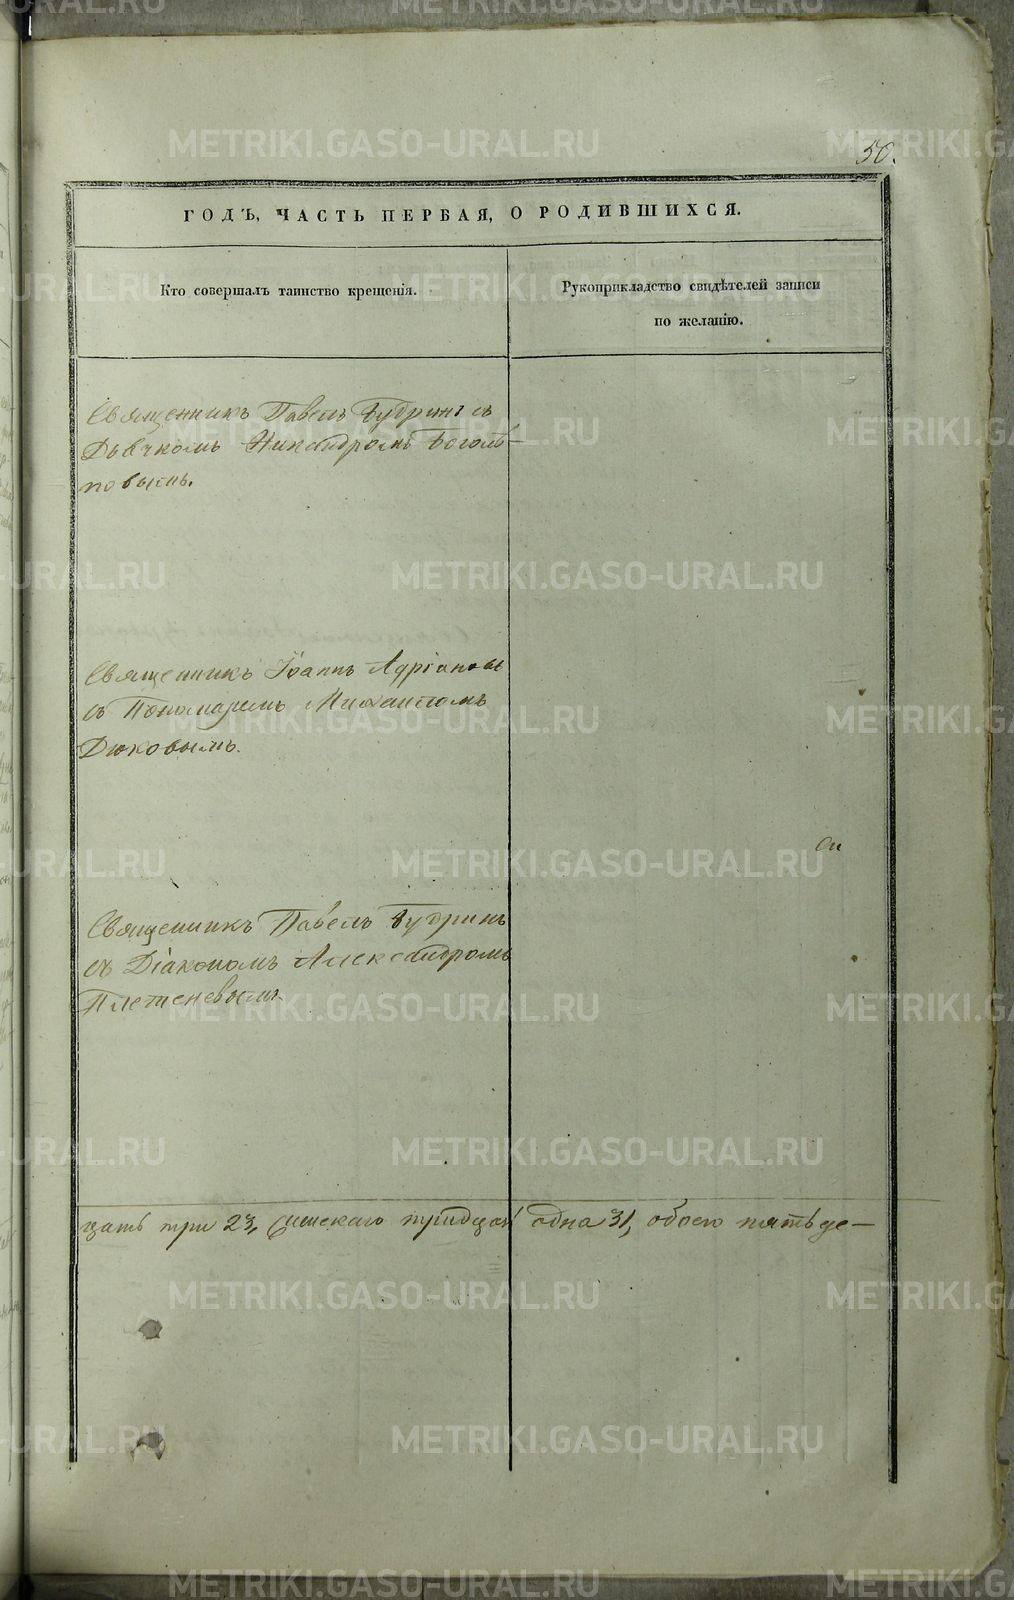 50.
ГОДЪ, ЧАСТЬ ПЕРВАЯ, О РОДИВШИХСЯ.
Кто совершалъ таинство крещенія.
Рукоприкладство свидѣтелей записи
по желанію.
Священникъ Павелъ Бубринъ съ
Дьячкомъ Никандромъ Богол-
повымъ.
Священникъ Іоаннъ Адріановъ
съ Пономаремъ Михаиломъ
Дюковымъ.
Священникъ Павелъ Бубринъ
съ Діакономъ Александромъ
Плетеневымъ.
цать три 23, женскаго тридцать одна 31, обоего пятьде-
METRIKI.GASO-URAL.RU